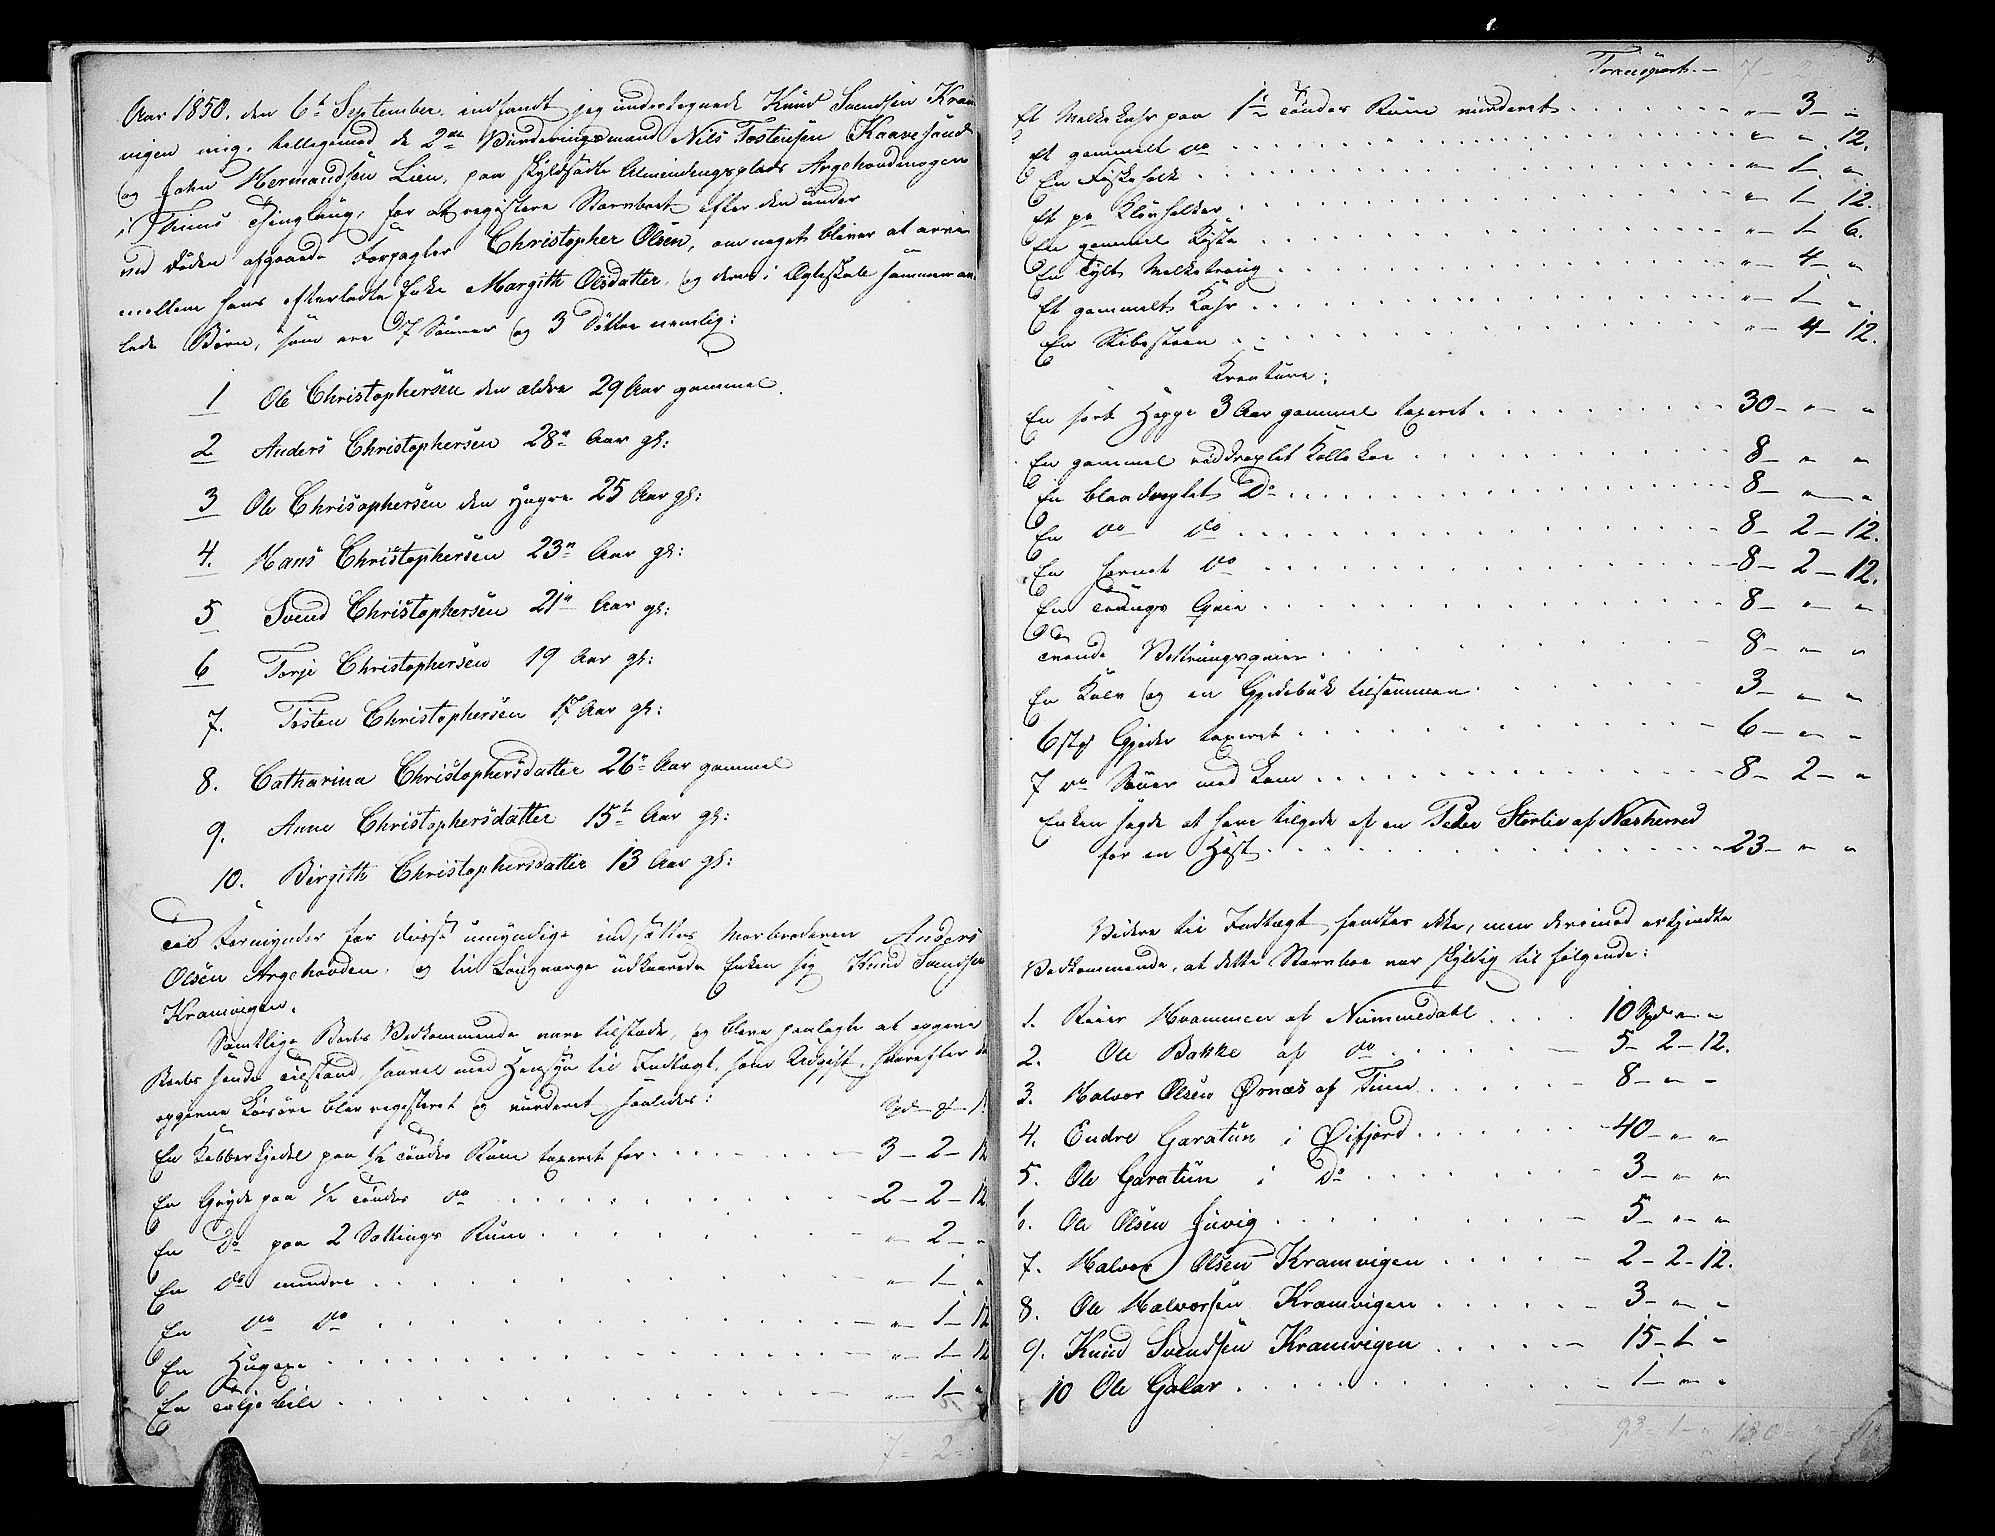 Aar 1850. den 6t September indfandt jeg undertegnede Knud Svendsen Kram
vigen mig, tilligemed de 2de Vurderingsmænd Nils Tostensen Haavesand
og John Hermandsen Lien, paa Skyldsatte Almindingsplads Argehovdmogen
i Tinns Thinglaug, for at registere Stervboet efter den under
ved Døden afgaaede Forpagter Christopher Olsen, om noget blever at arve
mellem hans efterladte Enke Margith Olsdatter, og dere i Ægteskab sammen av
lede Børn, som ere 7 Sønner og 3 Døttre nemlig:
1 Ole Christophersen den ældre 29 Aar gammel.
2 Anders Christophersen 28" Aar gl:
3 Ole Chrisophersen den yngre 25 Aar gl:
4. Hans Christophersen 23" Aar gl:
5 Svend Christophersen 21" Aar gl:
6 Torje Christophersen 19 Aar gl:
7. Tosten Christophersen 17 Aar gl:
8. Catharina Christophersdatter 26" Aar gammel
9. Anne Christophersdatter 15t Aar gl:
10. Birgith Christophersdatter 13 Aar gl:
Til Formynder for disse umyndige indsættes Morbroderen Anders
Olsen Argehovden, og til Laugværge udkaarede Enken sig Knud Svendsen
Kramvigen.
Samtlige Boets Vedkommende vare tilstæde, og bleve paalagte at opgive
Boets sande Tilstand, saavel med Hensyn til Indtægt, som Udgift, hvorefter de
opgivne Løsøre blev registeret og vurderet saaledes: Spd - ß
En Kobberkjedel paa 1/2 Tønders Rum taxeret for 3 - 2 - 12
En Gryde paa 1/2 Tønder do 2 - 2 - 12
En Do paa 2 Sættings Rum " 2 - "
En do mindre " - 1 - "
En do do " - 1 - 12
En " - 1 - 12
En Tæljebile " - 1 - "
7 - 2 -
Transport - 7 - 2
Et Melkekahr paa Tønder Rum vurderet " - 3 - "
Et gammelt do " - " - 12.
En " - 1 - "
Et pr " - 1 - 12.
En gammel Kiste " - 1 - 6.
En Tylt Melketraug " - 4 - "
Et gammelt Kahr " - 1 - "
En " - 4 - 12.
Kreature:
En sort Hoppe 3 Aar gammel taxeret 30 - " - "
En gammel røddroplet Kollekoe 8 - " - "
En blaadroplet Do 8 - " - "
En do do 8 - 2 - 12.
En hornet do 8 - 2 - 12.
En Qvie 8 - " - "
Tvende Vettrungsqvier 8 - " - "
En Kalv og en Gjedebuk tilsammen 3 - " - "
6 stk Gjeder taxeret 6 - " - "
7 do Souer med Lam 8 - 2 - "
Enken sagde at have tilgode af en Peder Storlie af Næsherred
for en Hest 23 - " - "
Videre til Indtægt fandtes ikke, men derimod erkjendte
Vedkommende, at dette Stervboe var skyldig til følgende:
1. Reier Hvammen af Nummedahl 10 Spd " - "
2. Ole Bakke af do 5 - 2 - 12.
3. Halvor Olsen Ørnæs af Tinn 8 - " - "
4. Endre Garatun i Øifjord 40 - " - "
5. Ole Garatun i Do 3 - " - "
6. Ole Olsen Juvig 5 - " - "
7. Halvor Olsen Kramvigen 2 - 2 - 12.
8. Ole Halvorsen Kramvigen 3 - " - "
9. Knud Svendsen Kramvigen 15 - 1 - "
10 Ole Gølar 1 - " - "
93 - 1 - " 130